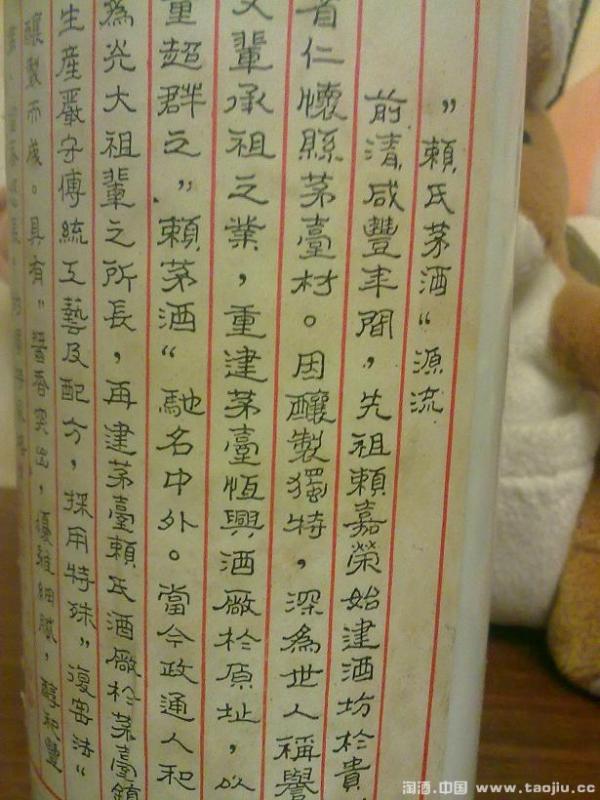 ”賴氏茅酒“源流
前清咸豐年間，先祖賴嘉榮始建酒坊於貴
省仁懷縣茅臺村。因釀製獨特，深為世人稱譽
父輩承祖之業，重建茅臺恆興酒廠於原址，以
重超群之”賴茅酒“馳名中外。當今政通人和
為光大祖輩之所長，再建茅臺賴氏酒廠於茅臺鎮
生産嚴守傳統工藝及配方，採用特殊”復窖法“
釀製而成。具有”醬香突出，優雅細膩，醇和豐
淘酒.中国 www.taojiu.cc